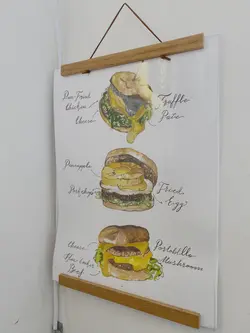 Pan-Fried
Chicken
Cheese
Truffle
Pate
Pineapple
Fried
Egg
Cheese
Beef
Portobello
Mushroom